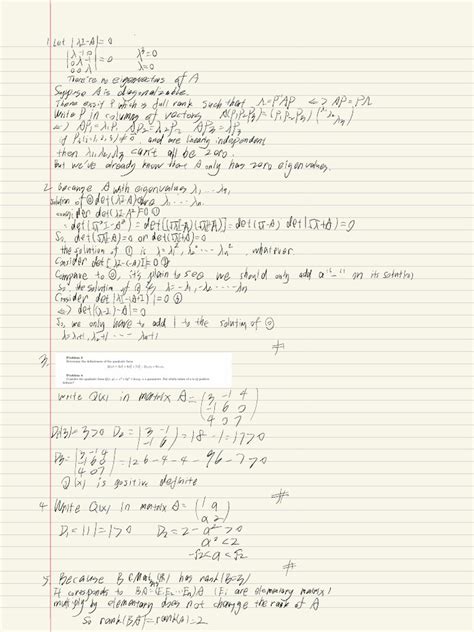 1. Let |λI-A|=0
|λ -1 0|
|0 λ -1| λ³=0
|0 0 λ| λ=0
There're no eigenvectors of A
Suppose A is diagonalizable.
There exsit P which is full rank such that Λ=P⁻¹AP <=> AP=PΛ
Write P in columns of vectors A(P₁P₂P₃)=(P₁P₂P₃)
<=> AP₁=λ₁P₁ AP₂=λ₂P₂ AP₃=λ₃P₃
if Pᵢ(i=1,2,3)≠0 and are linearly independent
then λ₁,λ₂,λ₃ can't all be zero.
But we've already know that A only has zero eigenvalues.
2. because A with eigenvalues λ₁,...λₙ,
solution of ① det(λI-A)=0 are λ₁...λₙ.
consider det(λI-A²)=0 ①
=det[√λ²I-A²]=det[(√λI-A)(√λI+A)]=det(√λI-A) det|√λI+A|=0
So, det(√λI-A)=0 or det(√λI+A)=0
the solution of ① is λ=λ₁², λ₂²...λₙ², whatever.
Consider det[λI-(-A)]=0 ②
Compare to ①, it's plain to see we should only add a "-" in its solution
So the solution of ② is λ=-λ₁,-λ₂...-λₙ
Consider det|λI-(A+I)|=0 ③
<=> det|(λ-1)-A|=0
So, we only have to add 1 to the solution of ①
λ=λ₁+1, λ₂+1 ... λₙ+1
#
3.
Problem 3
Determine the definiteness of the quadratic form
Problem 4
write Q(x) in matrix A=(3 -1 4
-1 6 0
4 0 7)
D₁|3|=3>0 D₂=|3 -1
-1 6|=18-1=17>0
D₃=|3 -1 4
-1 6 0
4 0 7|=126-4-4-96-7>0
Q(x) is positive definite
#
4. Write Q(x) in matrix A=(1 a
a 2)
D₁=|1|=1>0 D₂=2-a²>0
a²<2
-√2<a<√2
#
5. Because B∈Mat₃ₓ₃(R) has rank(B=3)
It corresponds to BA=(E₁E₂...Eₙ)A (Eᵢ are elementary matrix)
multiply by elementary does not change the rank of A
So rank(BA)=rank(A)=2